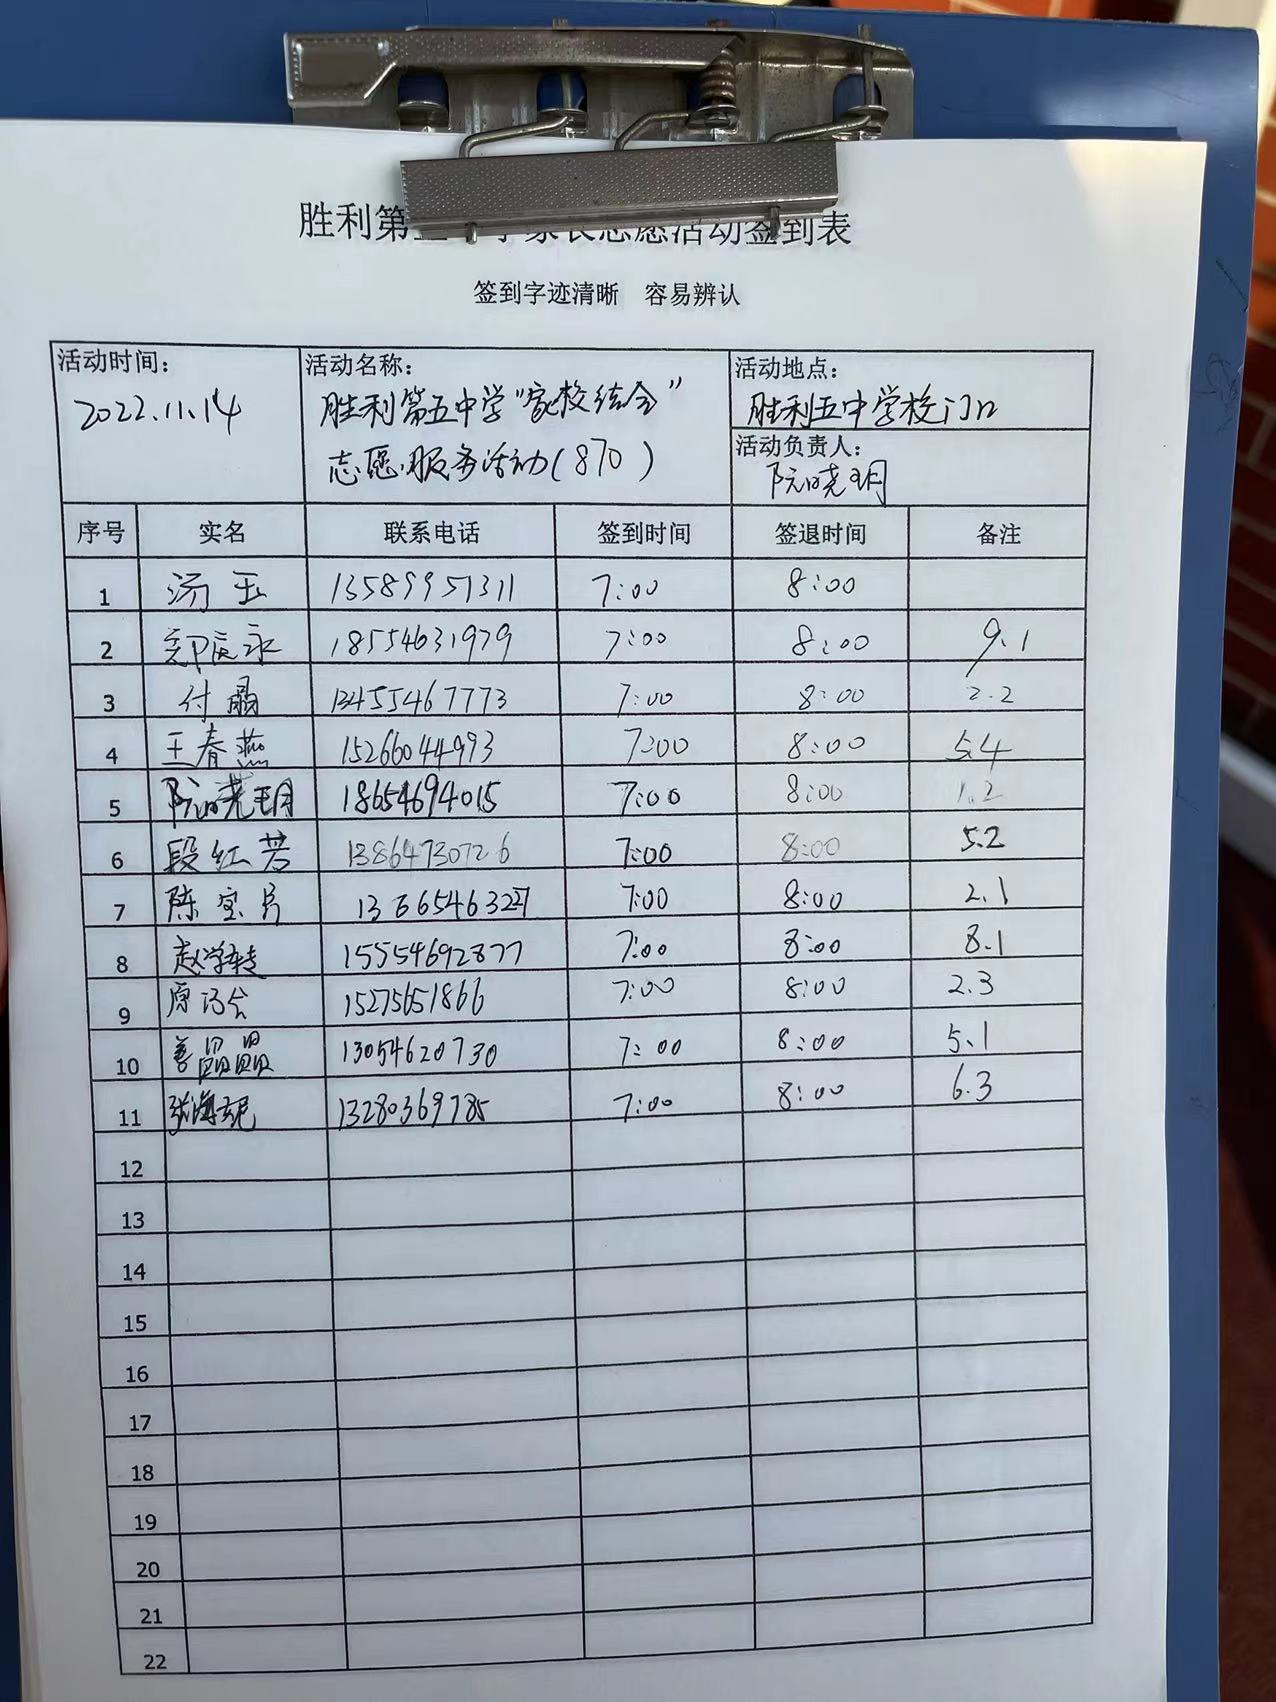 胜利第五中学家长志愿活动签到表
签到字迹清晰 容易辨认
活动时间：
2022.11.14
活动名称：
胜利第五中学“家校结合”
志愿服务活动（870）
活动地点：
胜利五中学校门口
活动负责人：
阮晓玥
序号 实名 联系电话 签到时间 签退时间 备注
1 汤玉 13589951311 7:00 8:00
2 郑庆永 18554631979 7:00 8:00 9.1
3 付晶 13455467773 7:00 8:00 2.2
4 王春燕 15266044993 7:00 8:00 5.4
5 阮晓玥 18654694015 7:00 8:00 1.2
6 段红芳 13864730726 7:00 8:00 5.2
7 陈宝 7:00 8:00 2.1
8 15554692877 7:00 8:00 8.1
9 15275651866 7:00 8:00 2.3
10 13054620730 7:00 8:00 5.1
11 张海 13280369785 7:00 8:00 6.3
12
13
14
15
16
17
18
19
20
21
22